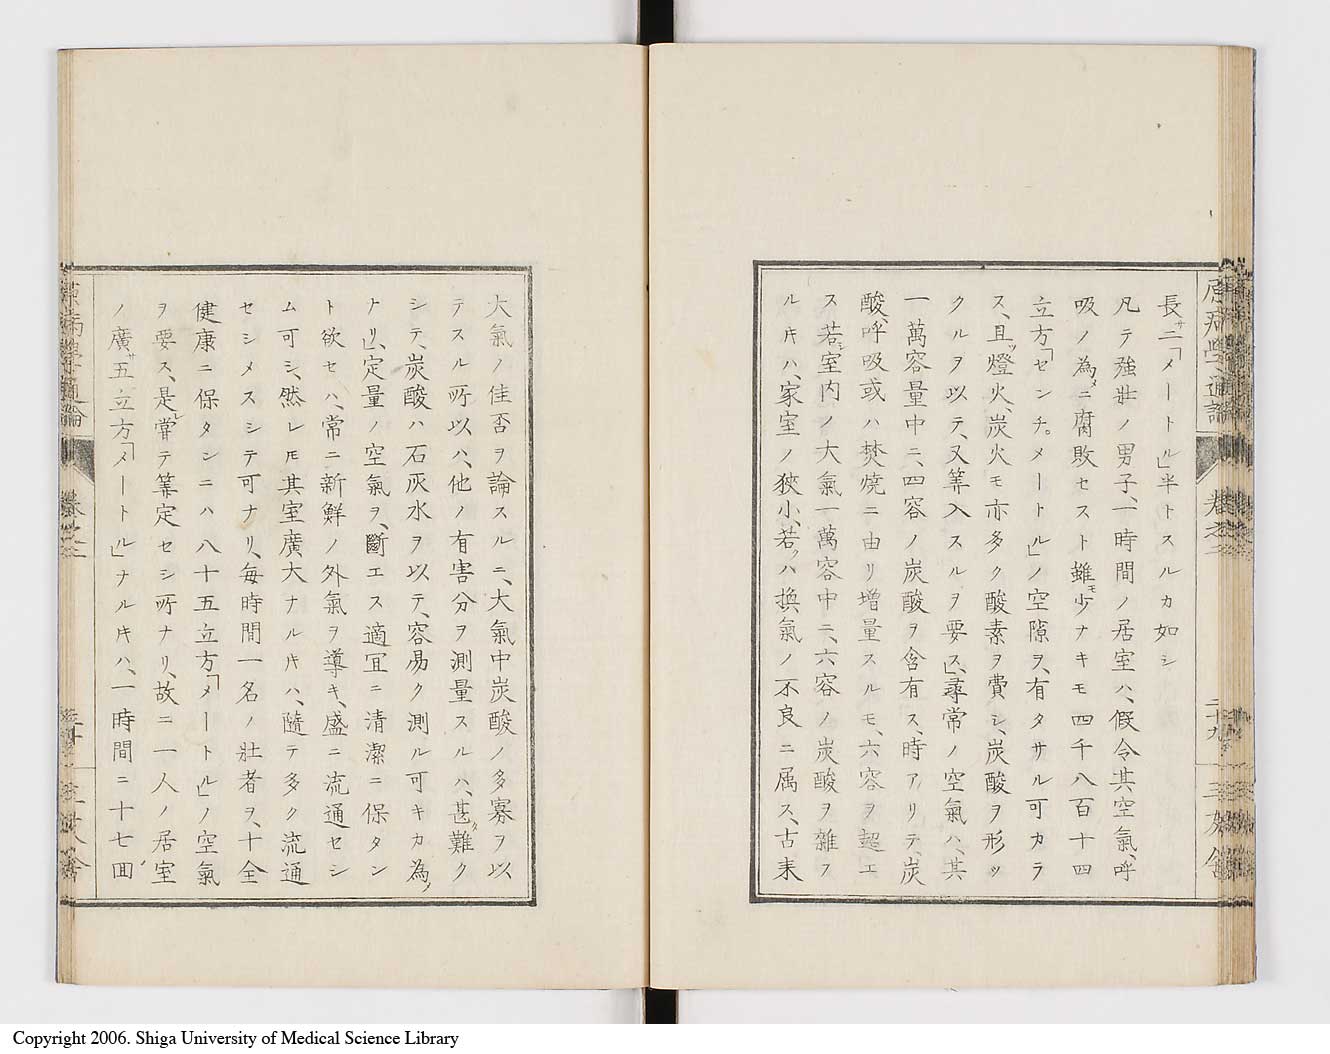 長サ二「メートル」半トスルカ如シ
凡テ強壯ノ男子、一時間ノ居室ハ、假令其空氣、呼
吸ノ為メニ腐敗セスト雖モ少ナキモ四千八百十四
立方「センチ。メートル」ノ空隙ヲ、有タサル可カラ
ス、且ツ燈火、炭火モ亦多ク酸素ヲ費シ、炭酸ヲ形ツ
クルヲ以テ、又筭入スルヲ要ス」尋常ノ空氣ハ、其
一萬容量中ニ、四容ノ炭酸ヲ含有ス、時アリテ、炭
酸、呼吸或ハ焚燒ニ由リ増量スルモ、六容ヲ超エ
ス若シ室内ノ大氣一萬容中ニ、六容ノ炭酸ヲ雜フ
ル𪜈ハ、家室ノ狹小、若クハ換氣ノ不良ニ属ス、古来
大氣ノ佳否ヲ論スルニ、大氣中炭酸ノ多寡ヲ以
テスル所以ハ、他ノ有害分ヲ測量スルハ、甚タ難ク
シテ、炭酸ハ石灰水ヲ以テ、容易ク測ル可キカ為ノ
ナリ」定量ノ空氣ヲ、斷エス適宜ニ清潔ニ保タン
ト欲セハ、常ニ新鮮ノ外氣ヲ導キ、盛ニ流通セシ
ム可シ、然レ𪜈其室廣大ナル𪜈ハ、隨テ多ク流通
セシメスシテ可ナリ、毎時間一名ノ壯者ヲ、十全
健康ニ保タンニハ八十五立方「メートル」ノ空氣
ヲ要ス、是レ甞テ筭定セシ所ナリ、故ニ一人ノ居室
ノ廣サ五立方「メートル」ナル𪜈ハ、一時間ニ十七回
Copyright 2006. Shiga University of Medical Science Library